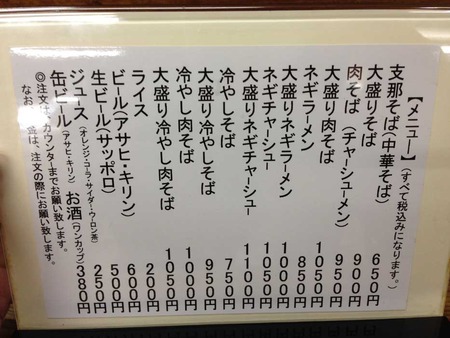 【メニュー】(すべて税込みになります。)
支那そば(中華そば) 650円
大盛りそば
肉そば(チャーシューメン) 900円
大盛り肉そば 1050円
ネギラーメン 850円
大盛りネギラーメン 1000円
ネギチャーシュー 1050円
大盛りネギチャーシュー 1100円
冷やしそば 750円
大盛り冷やしそば 950円
冷やし肉そば 1000円
大盛り冷やし肉そば 1050円
ライス 200円
ビール(アサヒ・キリン) 600円
生ビール(サッポロ) 500円
ジュース(オレンジ・コーラ・サイダー・ウーロン茶) 250円
缶ビール(アサヒ・キリン) お酒(ワンカップ) 380円
◎注文は、カウンターまでお願い致します。
なお 盛は、注文の際にお願い致します。